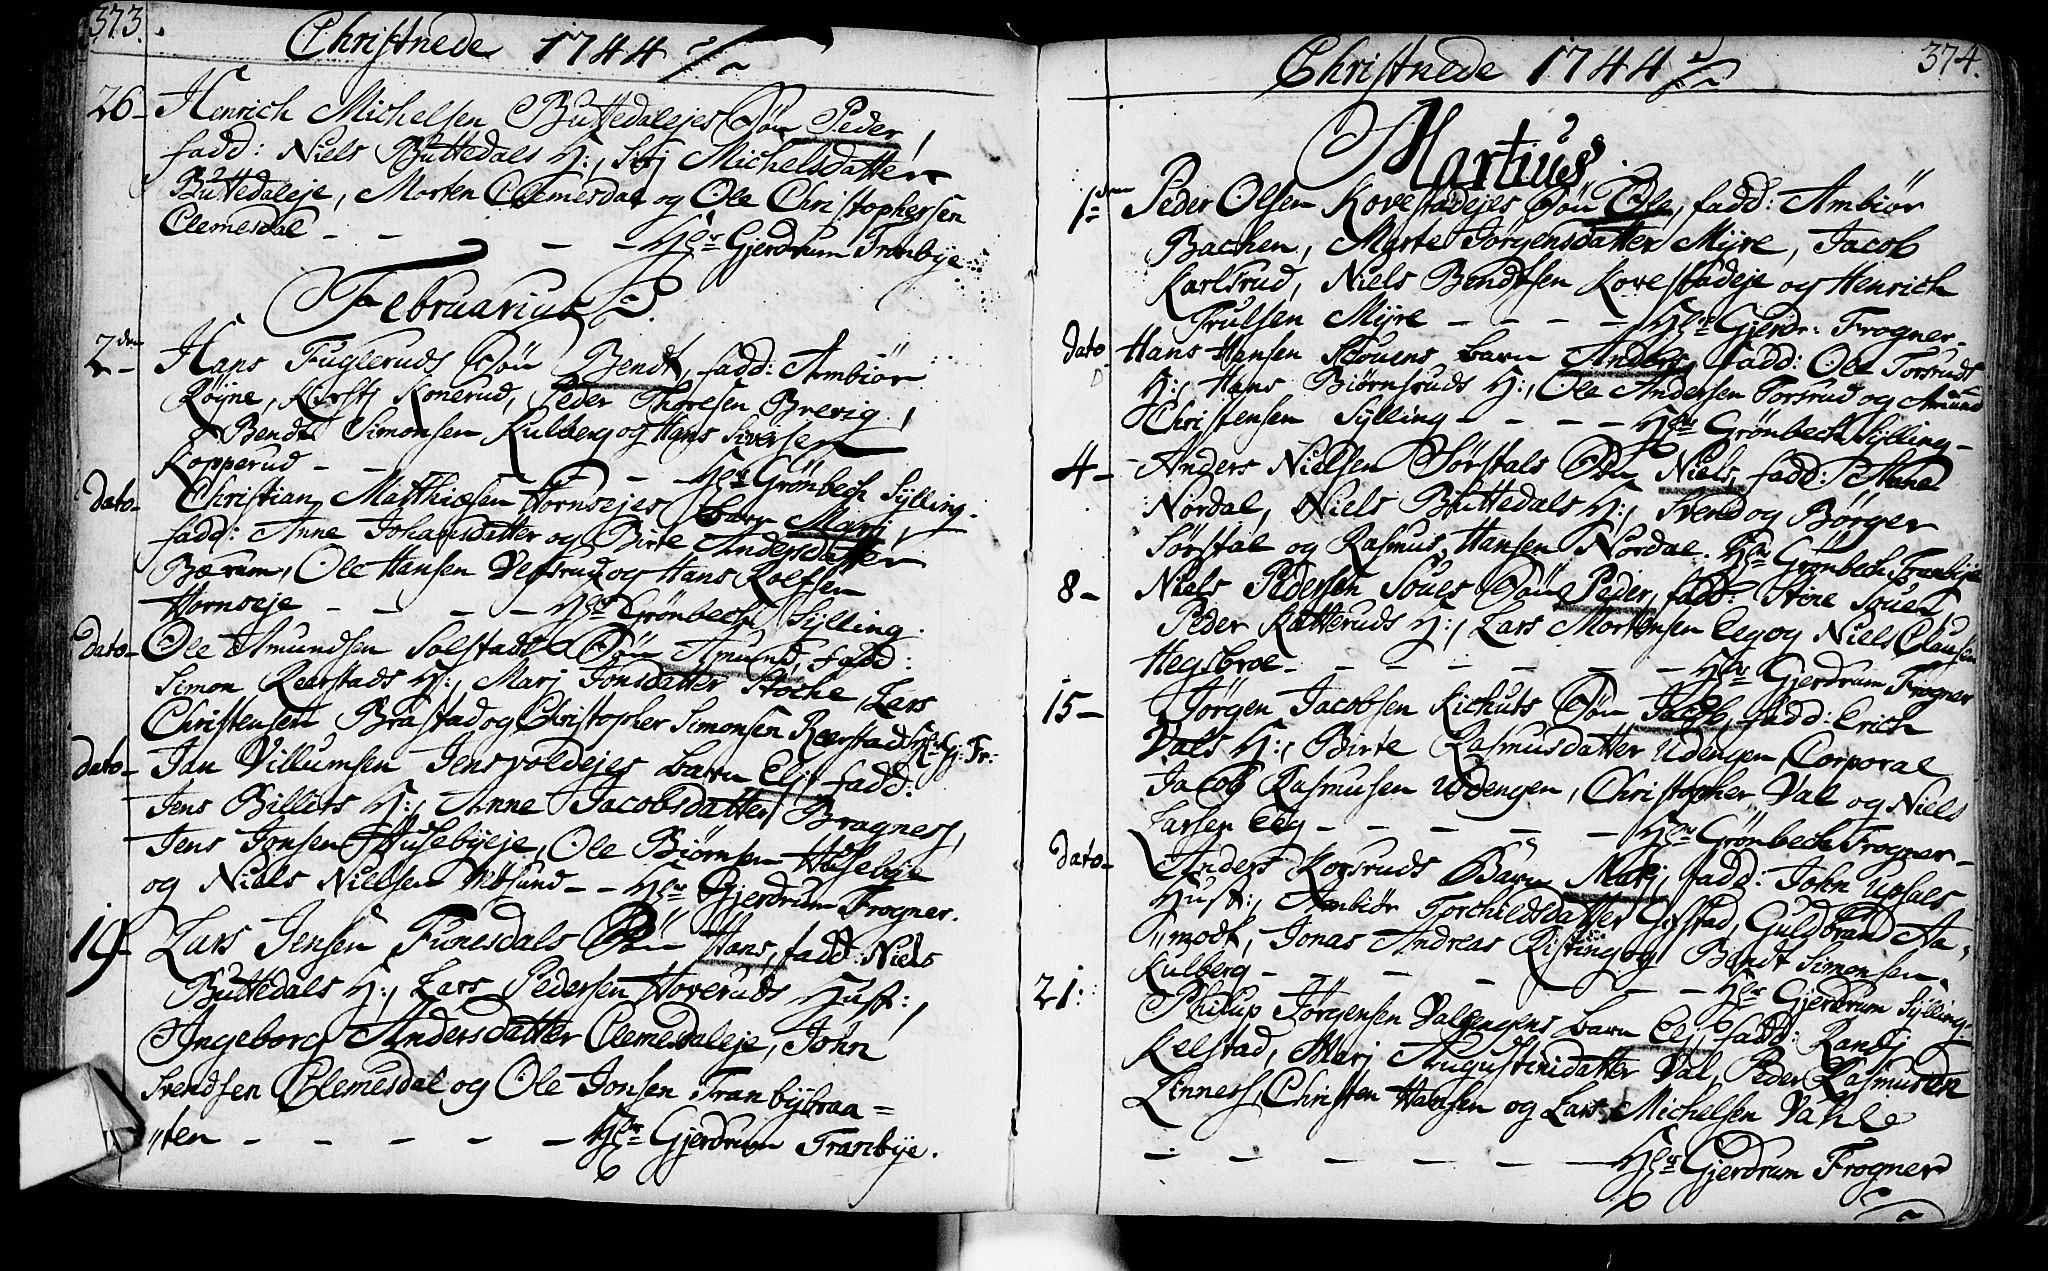 373.
Christnede 1744
26 - Henrich Michelsen Buttedalejes Søn Peder,
fadd: Niels Buttedals H:, Sitj Michelsdatter
Buttedaleje, Morten Clemesdal og Ole Christophersen
Clemesdal - - - - - Hr Gjerdrum Tranbye
Februarius
2den Hans Fugleruds Søn Bendt, fadd: Ambiør
Røyne, Kirstj Konerud, Peder Thoresen Brevig,
Bendt Simonsen Kulberg og Hans Siversen
Kopperud - - - - - Hr Grønbech Sylling.
dato - Christian Matthiæsen Hornsejes barn Marj,
fadd: Anne Johansdatter og Birte Andersdatter
Bærum, Ole Hansen Vefsrud og Hans Rolfsen
Hornseje - - - - Hr Grønbech Sylling.
dato - Ole Amundsen Solstads Søn Amund, fadd:
Simon Reerstads H:, Marj Jonsdatter Stoche Lars
Christensen Brastad og Christopher Simonsen Reerstad Hr G: Fr:
dato - Jan Villumsen Jensvoldejes barn Elj, fadd:
Jens Billets H:, Anne Jacobsdatter Bragness,
Jens Jonsen Husebyeje, Ole Biørnsen Husebye
og Niels Nielsen Vebsund - - Hr Gjerdrum Frogner.
19 - Lars Jensen Funesdals Søn Hans, fadd: Niels
Buttedals H:, Lars Pedersen Hoveruds Hust:,
Ingeborg Andersdatter Clemesdaleje, John
Svendsen Clemesdal og Ole Jonsen Tranbybraa=
"ten - - - - - - Hr Gjerdrum Tranbye.
Christnede 1744
374.
Martius
1den Peder Olsen Kovestadejes Søn Ole, fadd: Ambiør
Bachen, Marte Jørgensdatter Myre, Jacob
Karlsrud, Niels Bendtsen Kovestadeje og Henrich
Trulsen Myre - - - - Hr Gjerdr: Frogner -
dato Hans Hansen Scouens barn Anders, fadd: Ole Torsruds
H:, Hans Biørnsruds H:, Ole Andersen Torsrud og Amund
Christensen Sylling - - - - Hr Grønbech Sylling -
4 - Anders Nielsen Sørstals Søn Niels, fadd: Anne
Nordal, Niels Buttedals H:, Svend og Børger
Sørstal og Rasmus Hansen Nordal. Hr Grønbech Tranbye
8 - Niels Pedersen Soues Søn Peder, fadd: Stine Souen,
Peder Katteruds H:, Lars Mortensen Eeg og Niels Clausen
Hegsbroe - - - - - - - Hr Gjerdrum Frogner
15 - Jørgen Jacobsen Kichuts Søn Jacob, fadd: Erich
Vals H:, Birte Rasmusdatter Udengen, Corporal
Jacob Rasmusen Udengen, Christopher Val og Niels
Larsen Eeg - - - - - - Hr Grønbech Frogner -
dato - Anders Korsruds Barn Marj, fadd: John Upsals
Hust:, Ambiør Torchildsdatter Gistad, Guldbrand Aa=
"modt, Jonas Andreas Risting og Bendt Simonsen
Kulberg - - - - - - Hr Gjerdrum Sylling.
21. Philup Jørgensen Valengens barn Elj, fadd: Randj
Kelstad, Marj Augustinidatter Val, Peder Rasmusen
Linness, Christen Hansen og Lars Michelsen Vahle
- - - - - - - Hr Gjerdrum Frogner